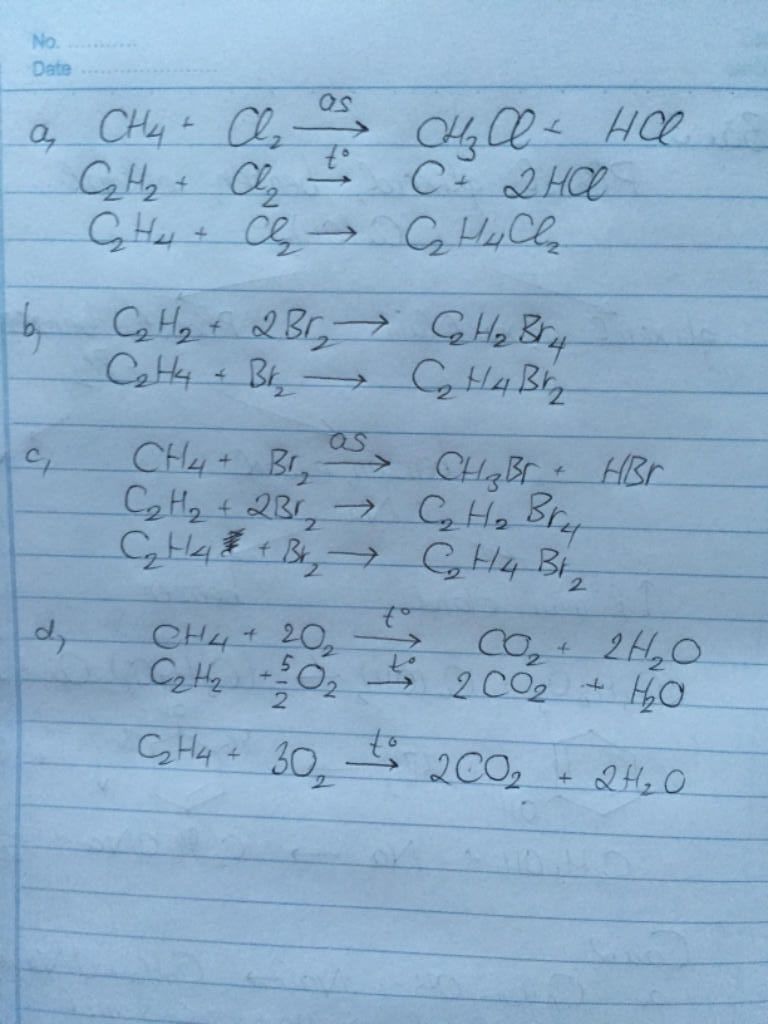 No. ............
Date ........................
a, CH₄ + Cl₂ —as→ CH₃Cl + HCl
C₂H₂ + Cl₂ —t°→ C + 2HCl
C₂H₄ + Cl₂ → C₂H₄Cl₂
b, C₂H₂ + 2Br₂ → C₂H₂Br₄
C₂H₄ + Br₂ → C₂H₄Br₂
c, CH₄ + Br₂ —as→ CH₃Br + HBr
C₂H₂ + 2Br₂ → C₂H₂Br₄
C₂H₄ + Br₂ → C₂H₄Br₂
d, CH₄ + 2O₂ —t°→ CO₂ + 2H₂O
C₂H₂ + 5/2 O₂ —t°→ 2CO₂ + H₂O
C₂H₄ + 3O₂ —t°→ 2CO₂ + 2H₂O